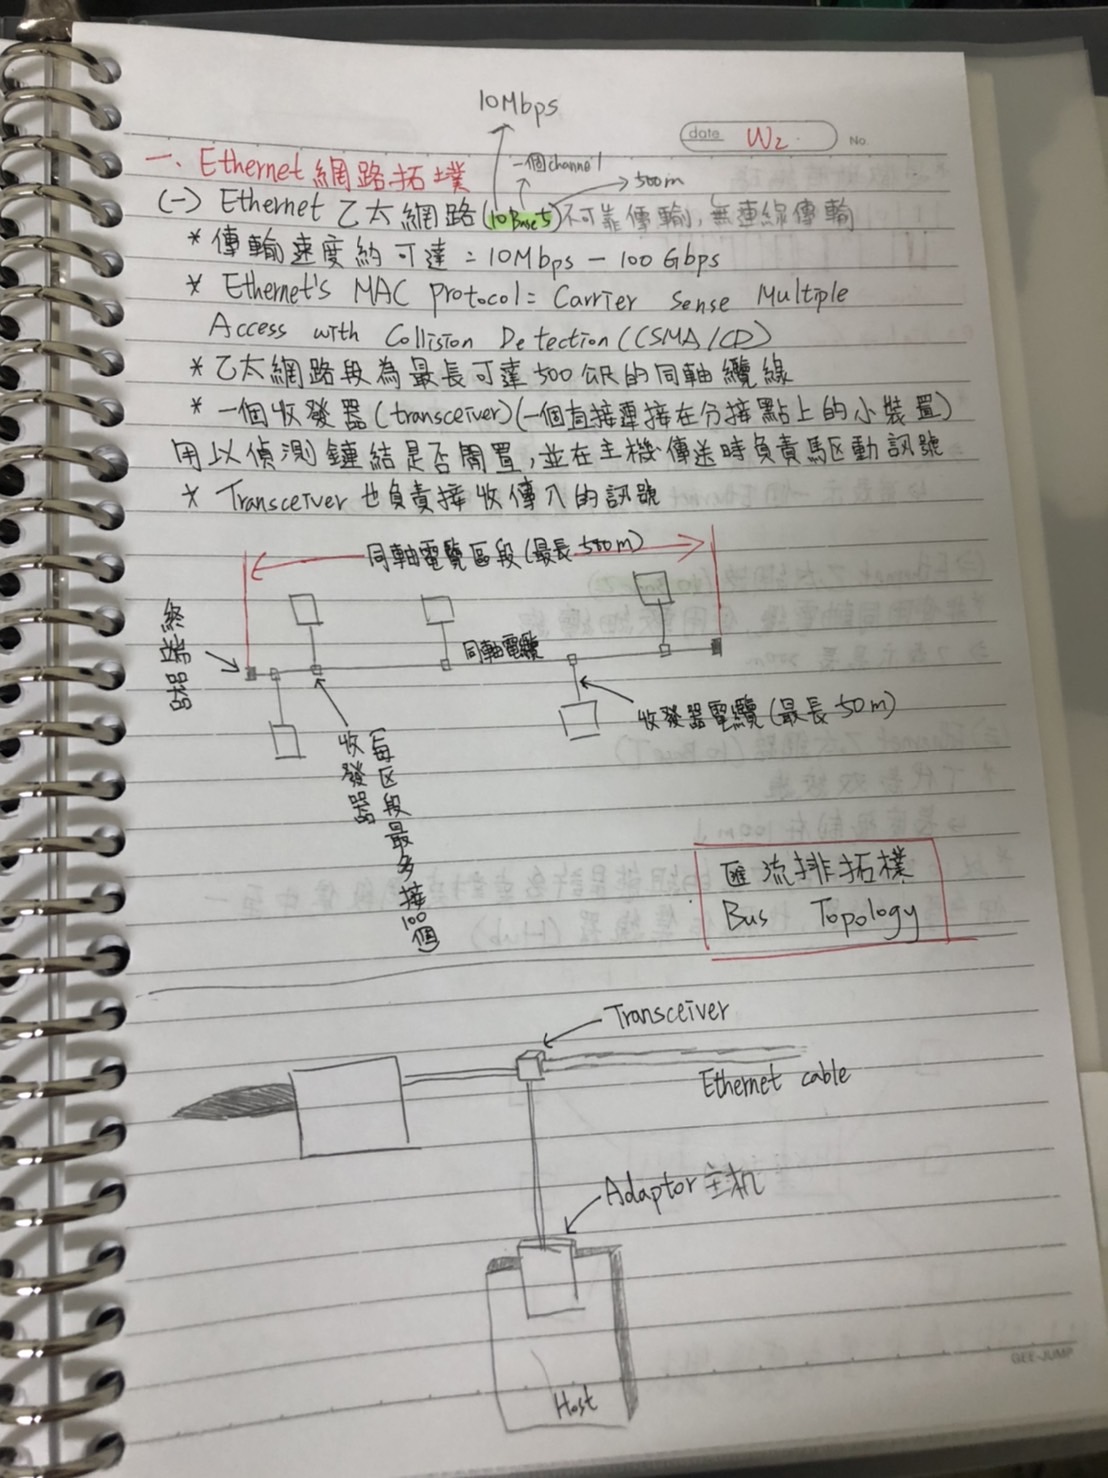 10Mbps
date W2.
No.
一個channel
500m
一、Ethernet網路拓墣
(一) Ethernet 乙太網路(10Base5)不可靠傳輸,無連線傳輸
* 傳輸速度約可達=10Mbps - 100Gbps
* Ethernet's MAC protocol= Carrier Sense Multiple
Access with Collision Detection (CSMA/CD)
* 乙太網路段為最長可達500公尺的同軸纜線
* 一個收發器(transceiver)(一個直接連接在分接點上的小裝置)
用以偵測鏈結是否閒置,並在主機傳送時負責驅動訊號
* Transceiver也負責接收傳入的訊號
同軸電纜區段(最長500m)
終端器
同軸電纜
收發器電纜(最長50m)
收發器
(每区段最多接100個)
匯流排拓樸
Bus Topology
Transceiver
Ethernet cable
Adaptor主机
Host
GEE-JUMP